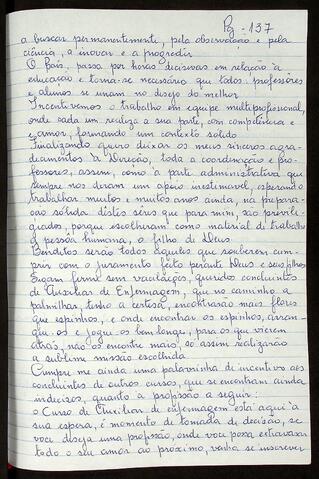 Pg - 137
a buscar permanentemente, pela observação e pela
ciência, a inovar e a progredir.
O País, passa por horas decisivas em relação à
educação e torna-se necessário que todos, professores
e alunos se unam no desejo do melhor.
Incentivemos o trabalho em equipe multiprofissional,
onde cada um realiza a sua parte, com competência e
e amor, formando um contexto sólido.
Finalizando quero deixar os meus sinceros agra-
decimentos à Direção, toda a coordenação e pro-
fessores, assim, como a parte administrativa que
sempre nos deram um apoio inestimável, esperando
trabalhar muitos e muitos anos ainda, na prepara-
ção sólida dêstes sêres que para mim, são previle-
giados porque escolheram como material de trabalho
a pessôa humana, o filho de Deus.
Benditos serão todos àqueles que souberem cum-
prir com o juramento feito perante Deus e seus filhos.
Sigam firmes sem vacilações, queridos concluintes
de Auxiliar de Enfermagem, que no caminho a
palmilhar, tenho a certesa, encontrarão mais flores
que espinhos, e onde encontrar os espinhos, arran-
que-os e jogue-os bem longe, para os que vierem
atrás, não os encontre mais, só assim realizarão
a sublime missão escolhida.
Cumpre me ainda uma palavrinha de incentivo aos
concluintes de outros cursos, que se encontram ainda
indecisos, quanto a profissão a seguir:
o Curso de Auxiliar de enfermagem está aqui à
sua espera, é momento de tomada de decisão, se
voce deseja uma profissão, onde voce possa extravasar
todo o seu amor ao próximo, venha se inscrever